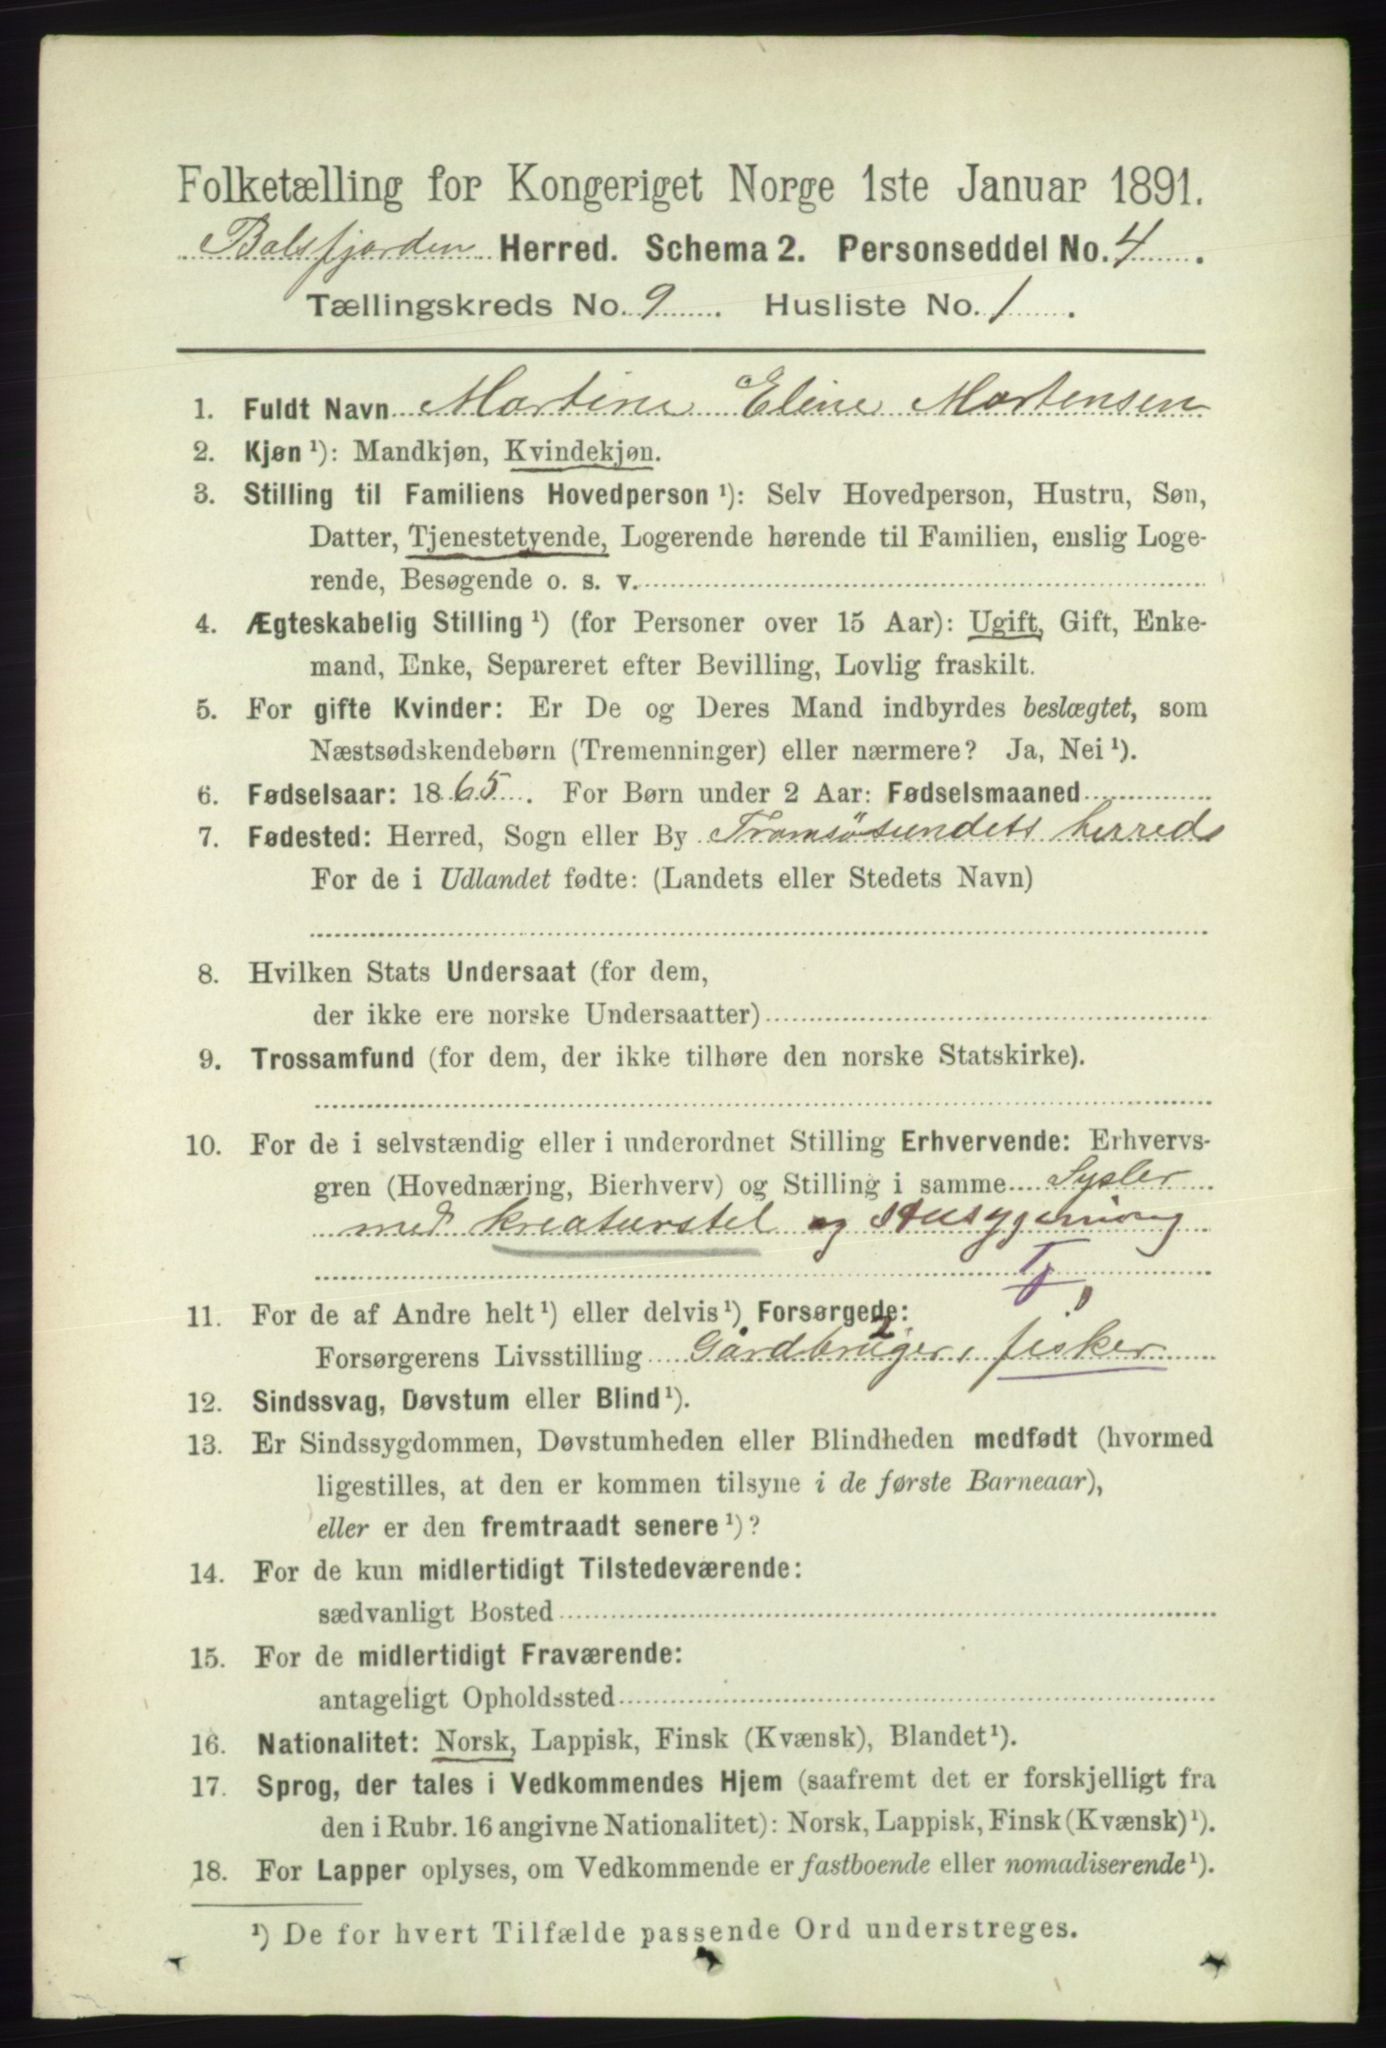 Folketælling for Kongeriget Norge 1ste Januar 1891.
Balsfjorden Herred. Schema 2. Personseddel No. 4.
Tællingskreds No. 9. Husliste No. 1.
1. Fuldt Navn Martine Eline Mortensen
2. Kjøn ¹): Mandkjøn, Kvindekjøn.
3. Stilling til Familiens Hovedperson ¹): Selv Hovedperson, Hustru, Søn,
Datter, Tjenestetyende, Logerende hørende til Familien, enslig Loge-
rende, Besøgende o. s. v.
4. Ægteskabelig Stilling ¹) (for Personer over 15 Aar): Ugift, Gift, Enke-
mand, Enke, Separeret efter Bevilling, Lovlig fraskilt.
5. For gifte Kvinder: Er De og Deres Mand indbyrdes beslægtet, som
Næstsødskendebørn (Tremenninger) eller nærmere? Ja, Nei ¹).
6. Fødselsaar: 1865. For Børn under 2 Aar: Fødselsmaaned
7. Fødested: Herred, Sogn eller By Tromsøsundets herred
For de i Udlandet fødte: (Landets eller Stedets Navn)
8. Hvilken Stats Undersaat (for dem,
der ikke ere norske Undersaatter)
9. Trossamfund (for dem, der ikke tilhøre den norske Statskirke).
10. For de i selvstændig eller i underordnet Stilling Erhvervende: Erhvervs-
gren (Hovednæring, Bierhverv) og Stilling i samme Sysler
med kreaturstel og
11. For de af Andre helt ¹) eller delvis ¹) Forsørgede:
Forsørgerens Livsstilling Gårdbruger, fisker
12. Sindssvag, Døvstum eller Blind ¹).
13. Er Sindssygdommen, Døvstumheden eller Blindheden medfødt (hvormed
ligestilles, at den er kommen tilsyne i de første Barneaar),
eller er den fremtraadt senere ¹)?
14. For de kun midlertidigt Tilstedeværende:
sædvanligt Bosted
15. For de midlertidigt Fraværende:
antageligt Opholdssted
16. Nationalitet: Norsk, Lappisk, Finsk (Kvænsk), Blandet ¹).
17. Sprog, der tales i Vedkommendes Hjem (saafremt det er forskjelligt fra
den i Rubr. 16 angivne Nationalitet): Norsk, Lappisk, Finsk (Kvænsk) ¹).
18. For Lapper oplyses, om Vedkommende er fastboende eller nomadiserende ¹).
¹) De for hvert Tilfælde passende Ord understreges.